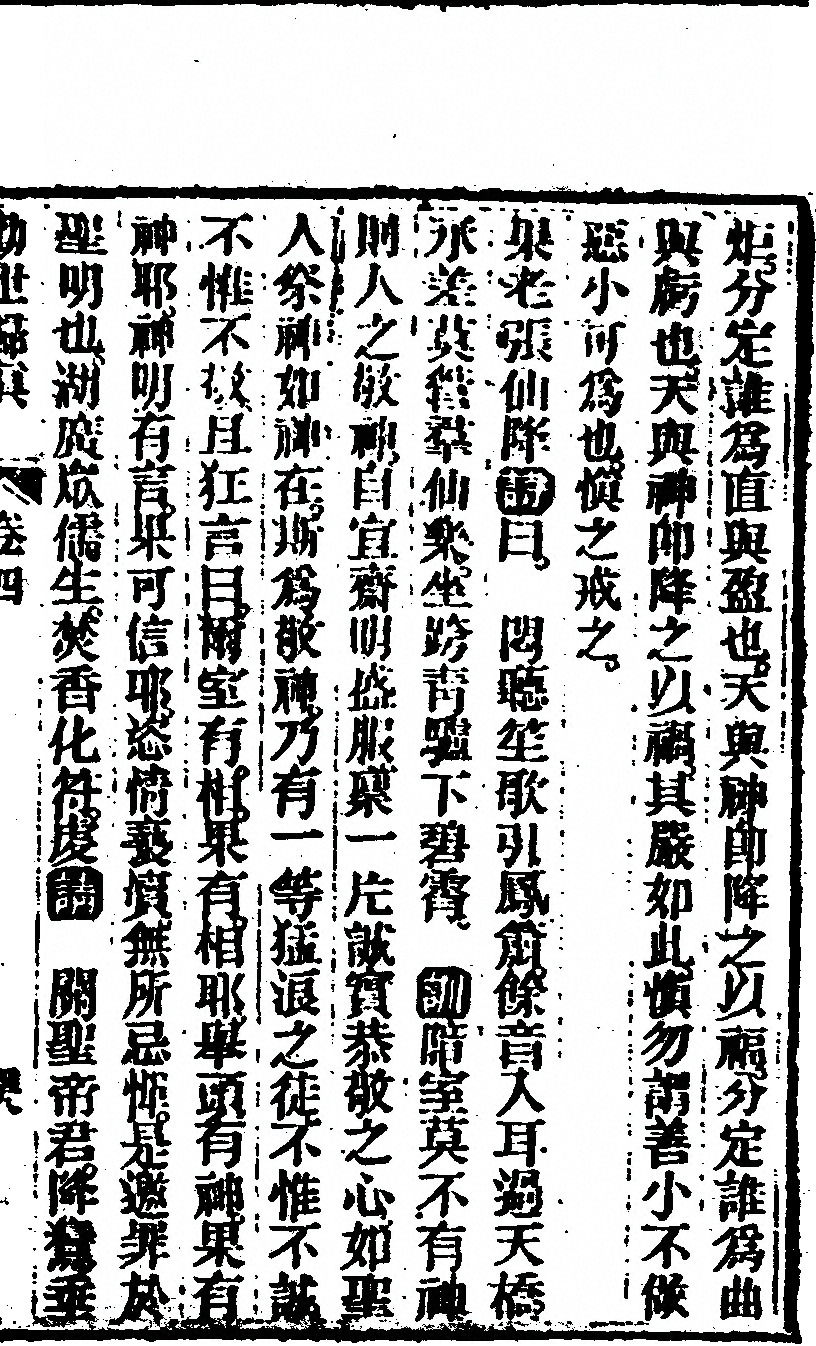 炬分定誰為直與盈也天與神即降之以福分定誰為曲
與虧也天與神即降之以禍其嚴如此慎勿謂善小不做
惡小可為也慎之戒之
果老張仙降詩曰 悶聽笙歌引鳳簫餘音人耳過天橋
承差莫管羣仙樂坐跨靑驢下碧霄 訓暗室莫不有神
則人之敬神自宜齋明盛服稟一片誠實恭敬之心如聖
人祭神如神在斯為敬神乃有一等猛浪之徒不惟不誠
不惟不敬且狂言曰爾室有相果有相耶舉頭有神果有
神耶神明有言果可信耶恣情褻瀆無所忌憚是邀罪於
聖明也湖廣眾儒生焚香化符虔請 關聖帝君降鸞垂
勸世歸真 卷四